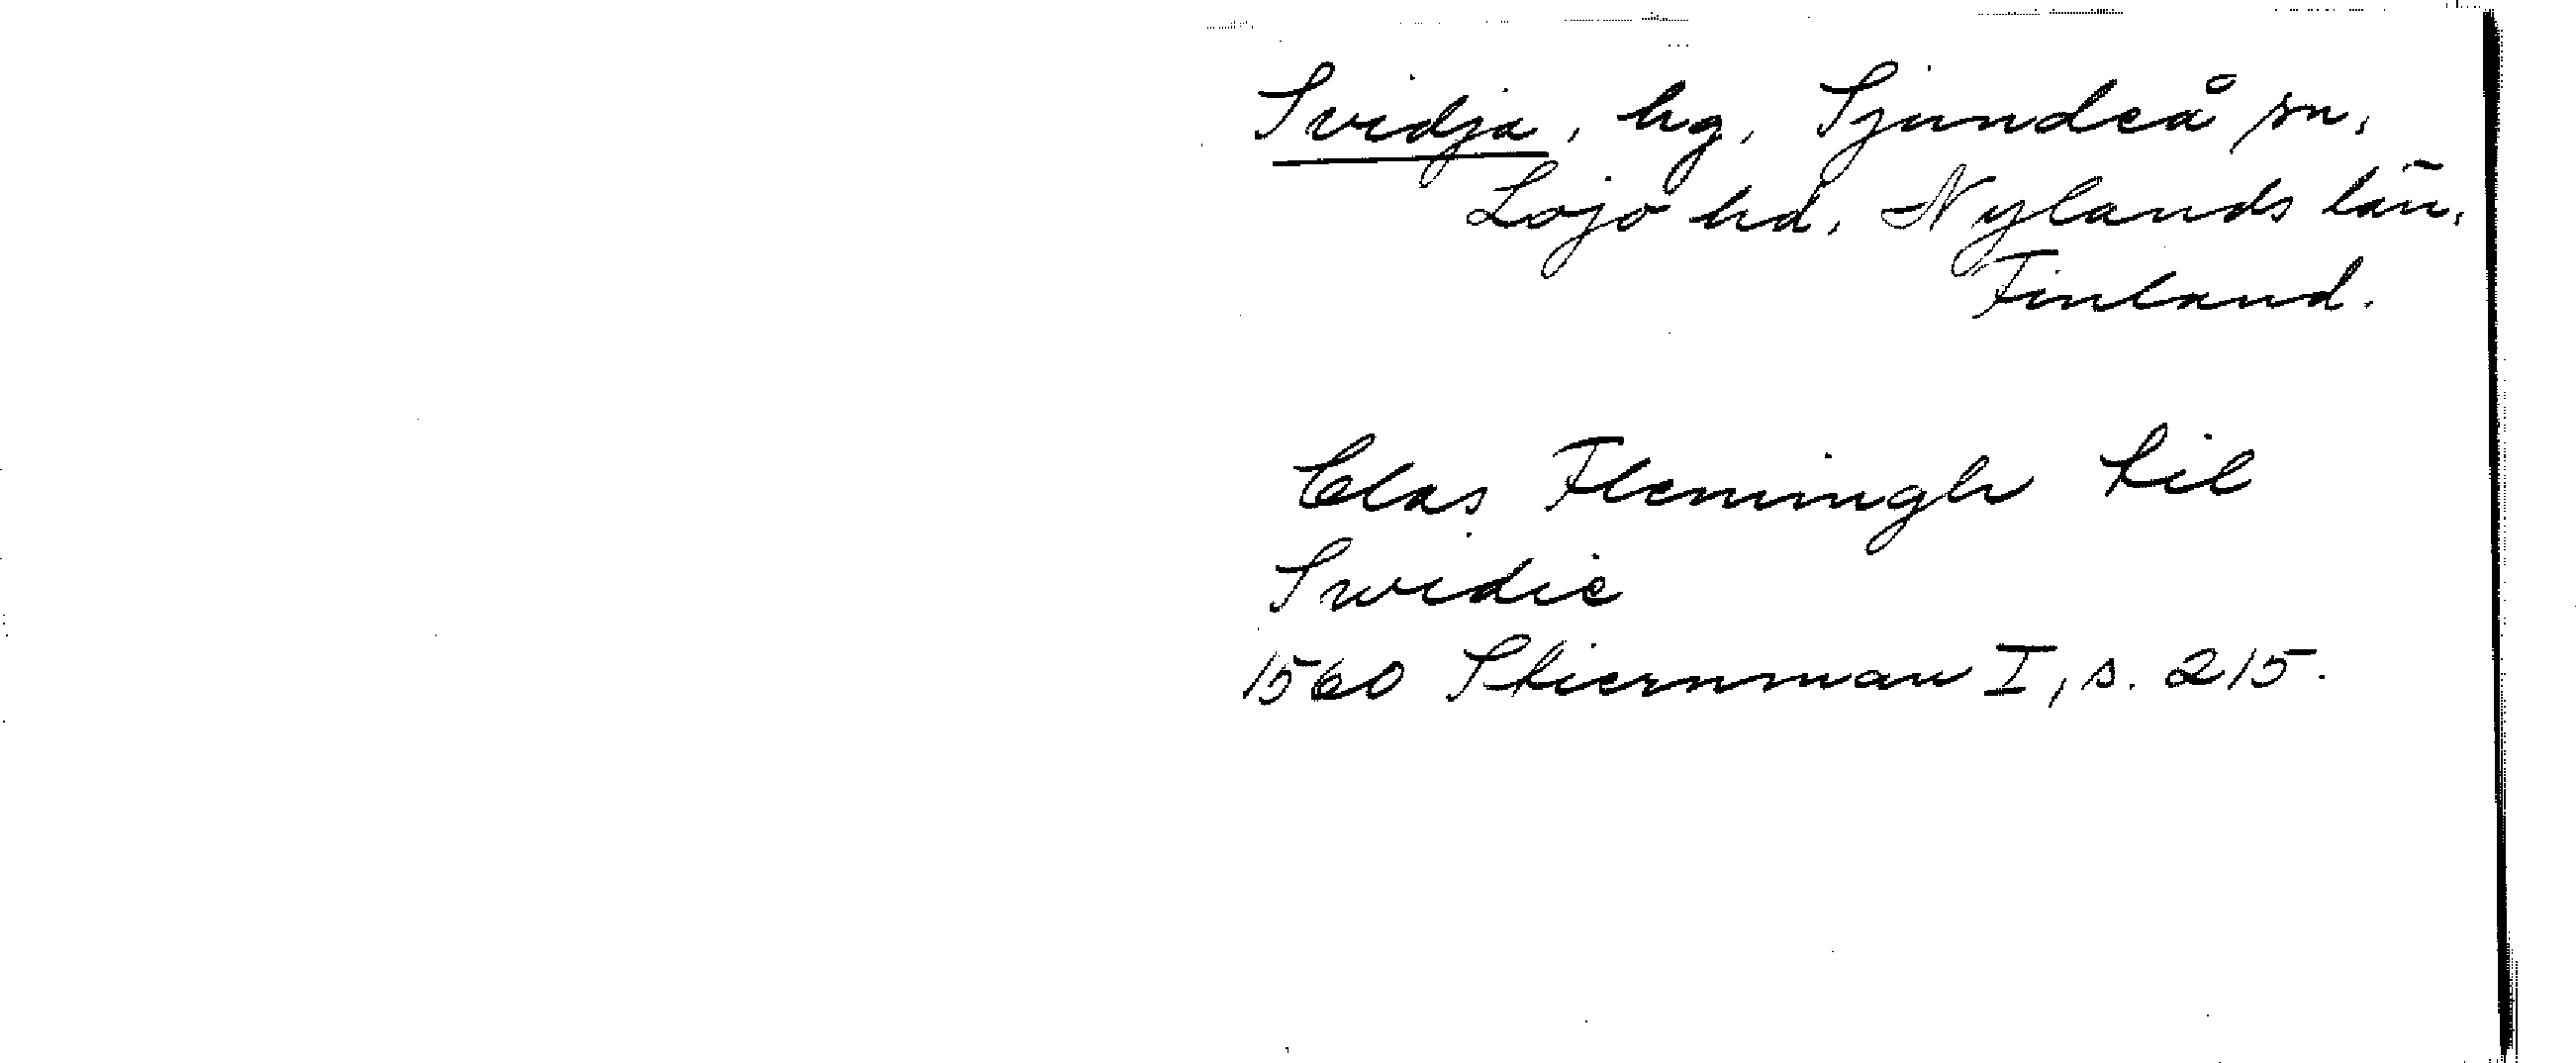 Svidja, hg, Sjundeå sn,
Lojo hd, Nylands län,
Finland.
Clas Flemingh til
Swidie
1560 Stiernman I, s. 215.